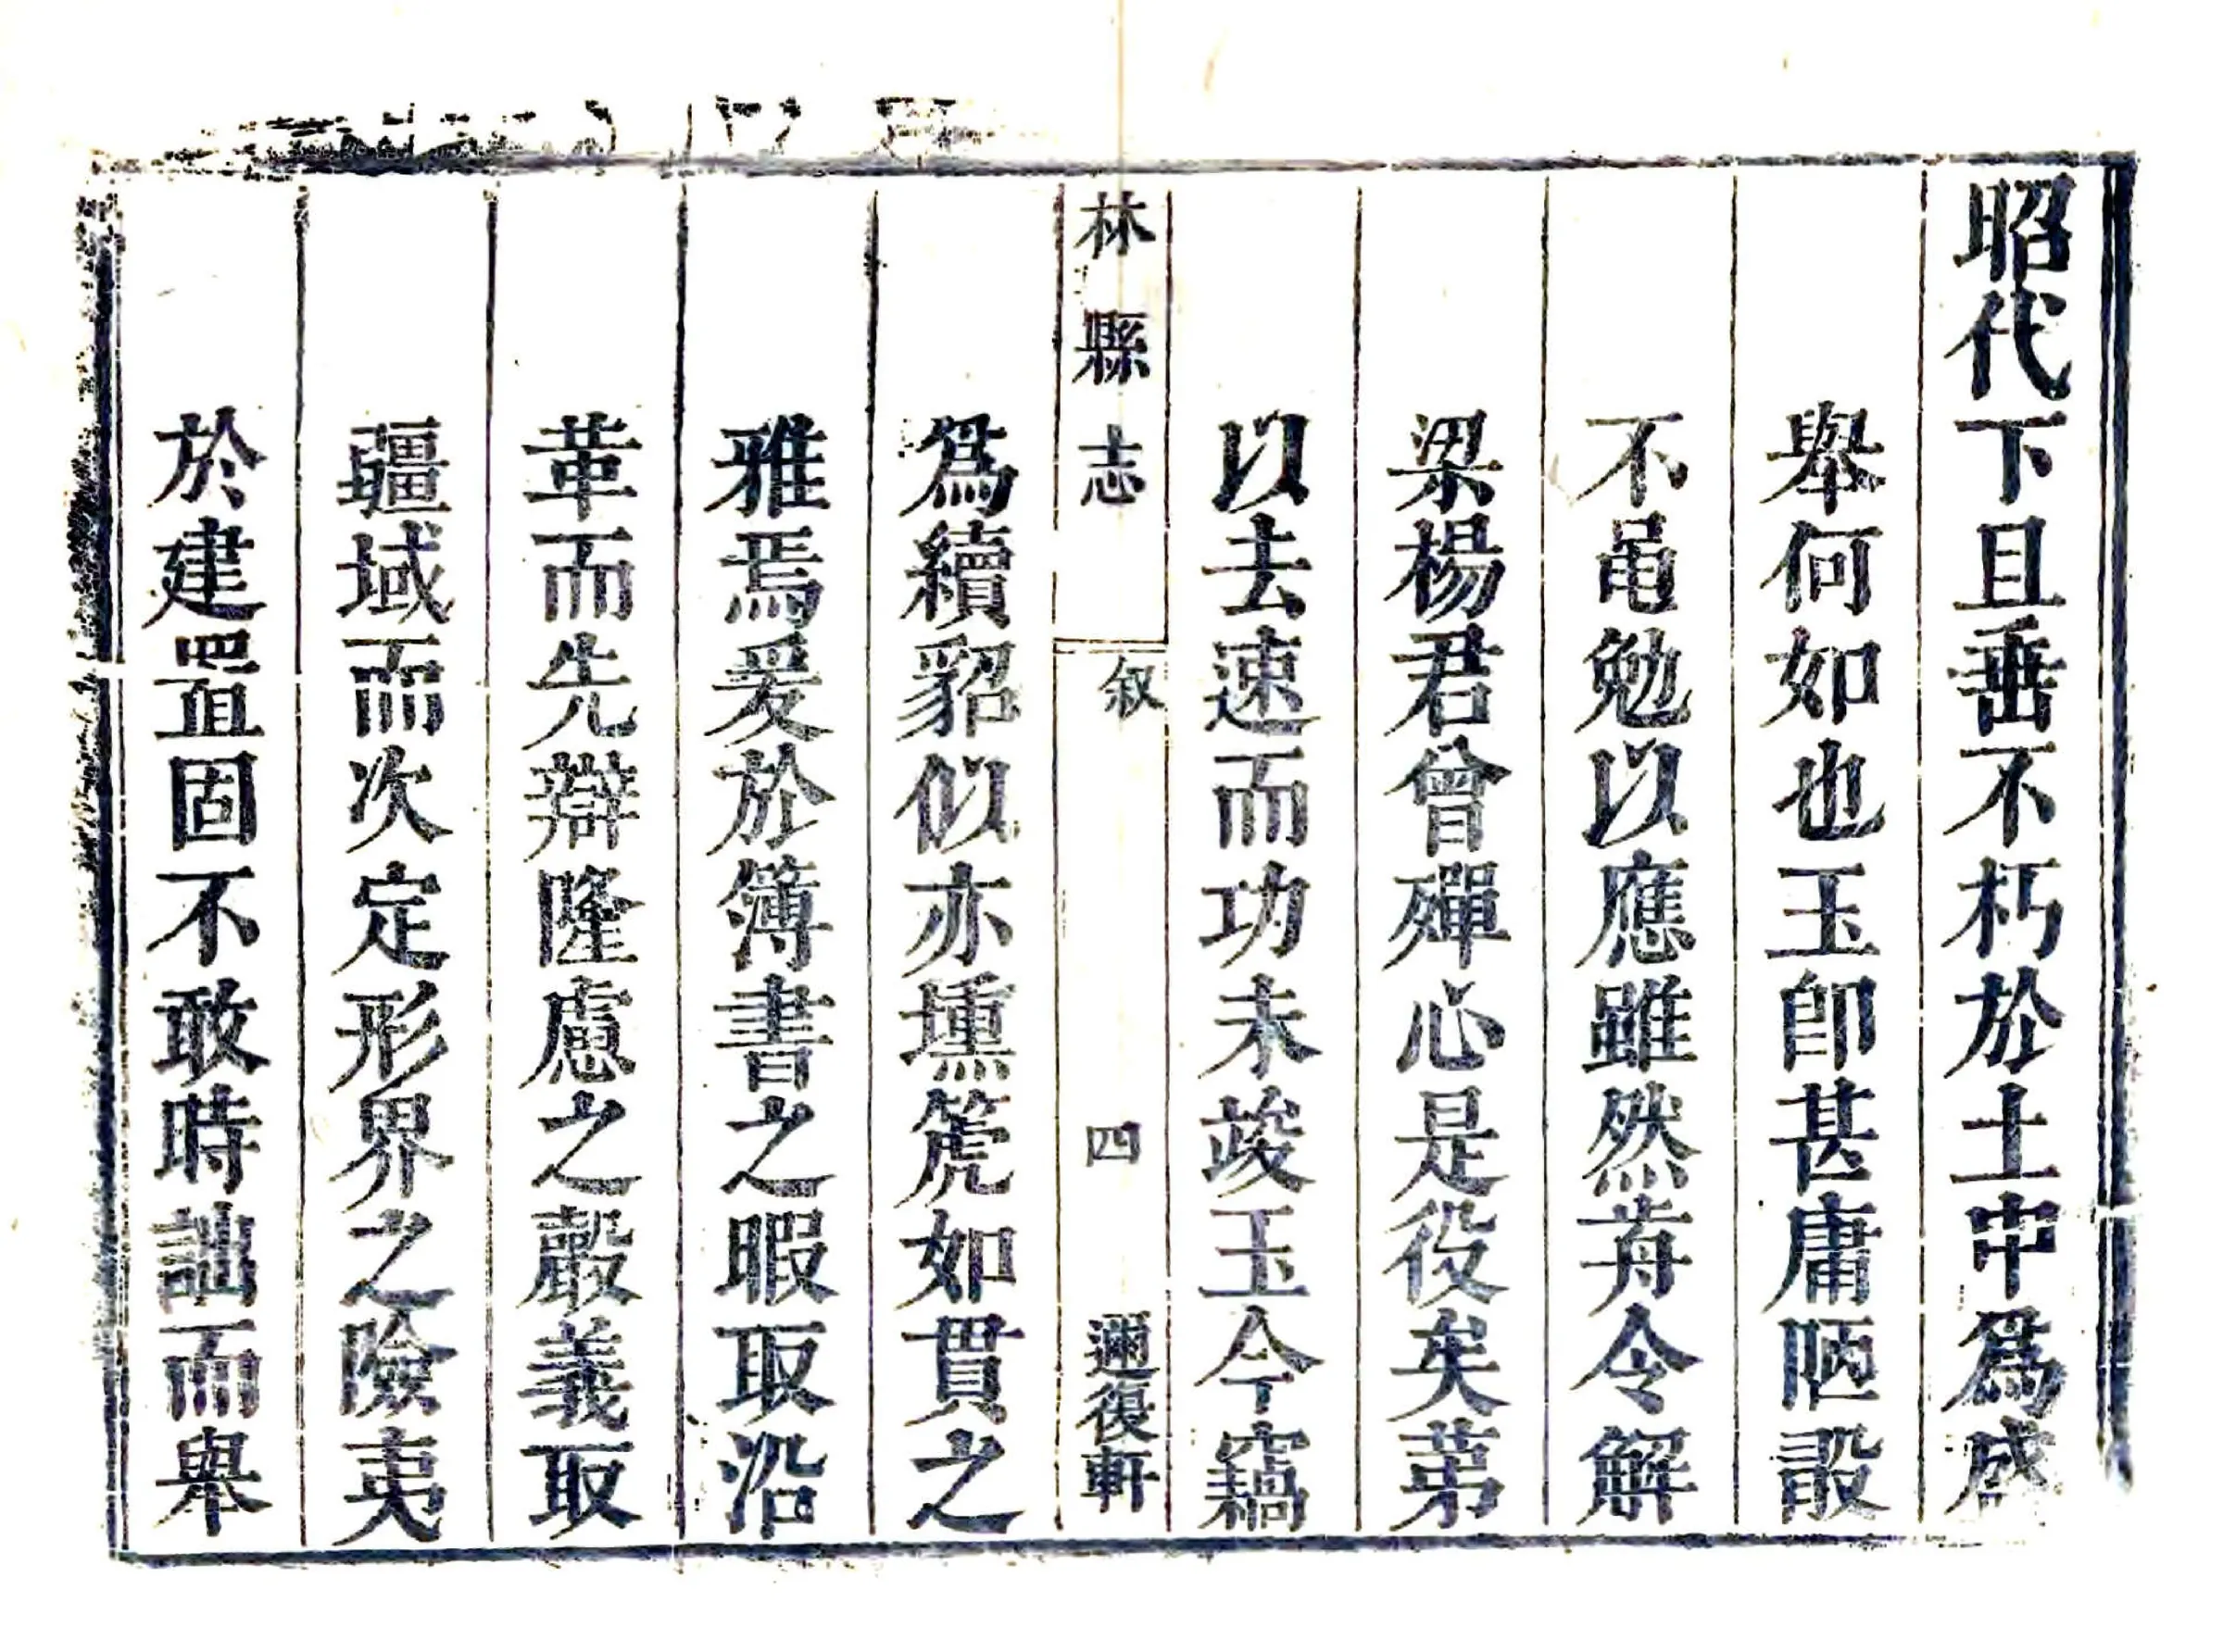 昭代下且垂不朽於土中爲盛
舉何如也玉卽甚庸陋敢
不黽勉以應雖然前令解
梁楊君曾殫心是役矣第
以去速而功未竣玉今竊
林縣志 叙 四 邇復軒
爲續貂似亦壎箎如貫之
雅焉爰於簿書之暇取沿
革而先辯隆慮之嚴義取
疆域而次定形界之險夷
於建置固不敢時詘而舉